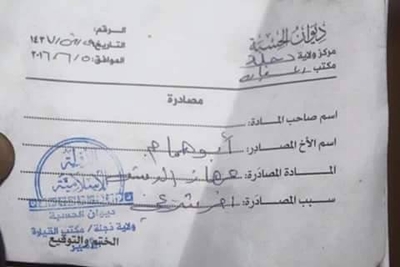 ديوان الحسبة
مركز ولاية دجلة
مكتب
الرقم:
التاريخ ١٤٣٧/
الموافق: ٢٠١٦/٦/٥
مصادرة
اسم صاحب المادة:
اسم الأخ المصادر: أبو همام
المادة المصادرة: جهاز الدش
سبب المصادرة:
ديوان الحسبة
ولاية دجلة / مكتب القيارة
الختم والتوقيع